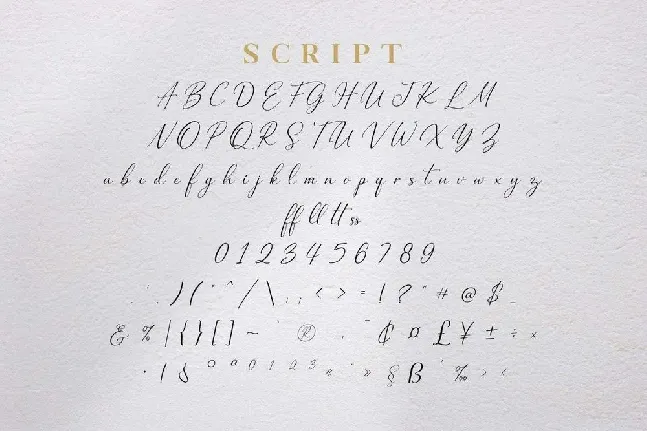 SCRIPT
A B C D E F G H U J K L M
N O P Q R S T U V W X Y Z
a b c d e f g h i j k l m n o p q r s t u v w x y z
ff ll tt ss
0 1 2 3 4 5 6 7 8 9
) ( ^ / \ : ; < > = ! ? " # @ $ _
& % | { } [ ] ~ ® ¢ ¤ £ ¥ ± ÷ ×
· | º ª 0 1 2 3 « » § ß ‰ › ‹